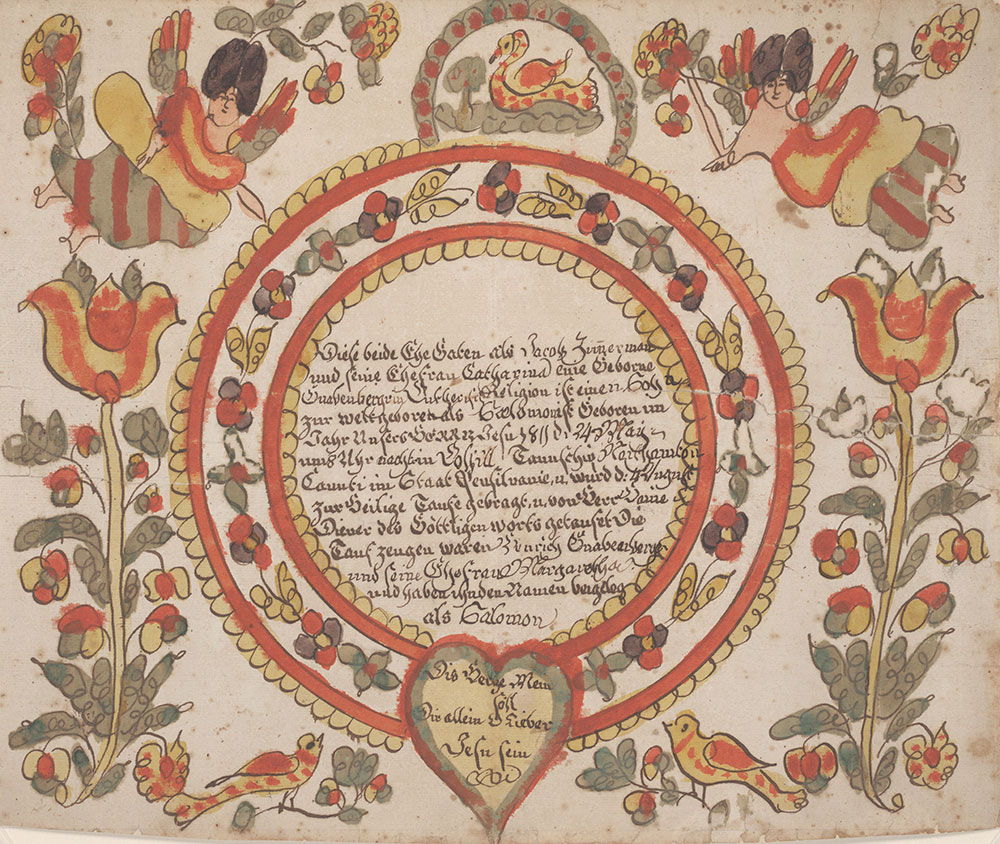 Diese beide Ehe Gaten als Jacob Zimerman
und seine Ehefrau Catharina eine Geborne
Gnavenbergrin Religion ist einen Sohn
zur welt geboren als Geboren im
Jahr Unsers HERRN Jesu 1811 d: 24 May
um Uhr nacht in Taunschip Northamton
Caunti im Staat Pensilvanie, u. wurd d: 4 August
zur Heilige Taufe gebragt, u. von Herr
Diener des Göttligen worts getaufet Die
Taufzeugen waren Henrich
und seine Ehefrau Margaretha
und haben ihn den Namen beigeleg
als Salomon
Dis Herze Mein
soll
Dir allein O Lieber
Jesu sein